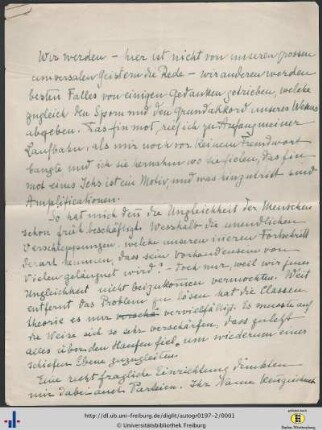 Wir werden – hier ist nicht von unseren grossen
universalen Geistern die Rede – wir anderen werden
besten Falles von einigen Gedanken getrieben, welche
zugleich den Sporn und den Grundakkord unseres Wesens
abgeben. Das fin mot, rief ich zu Anfang meiner
Laufbahn, als mir noch vor keinem Fremdwort
bangte und ich sie vernahm wo sie fielen, das fin
mot eines Ichs ist ein Motiv und was hinzutritt sind
Amplificationen.
So hat mich denn die Ungleichheit der Menschen
schon früh beschäftigt. Weshalb die unendlichen
Verschleppungen, welche unseren inneren Fortschritt
derart hemmen, dass sein Vorhandensein von
Vielen geleugnet wird? – Doch nur, weil wir jener
Ungleichheit nicht beizukommen vermochten. Weit
entfernt das Problem zu lösen hat die Classen
theorie es nur verschä vervielfältigt. Es musste auf
die Weise sich so sehr verschärfen, dass zuletzt
alles über den Haufen fiel, um wiederum einer
schiefen Ebene zuzugleiten.
Eine recht fragliche Einrichtung dünkten
mir dabei auch Parteien. Ihr Name kennzeichnet
http://dl.ub.uni-freiburg.de/diglit/autogr0197-2/0001
© Universitätsbibliothek Freiburg